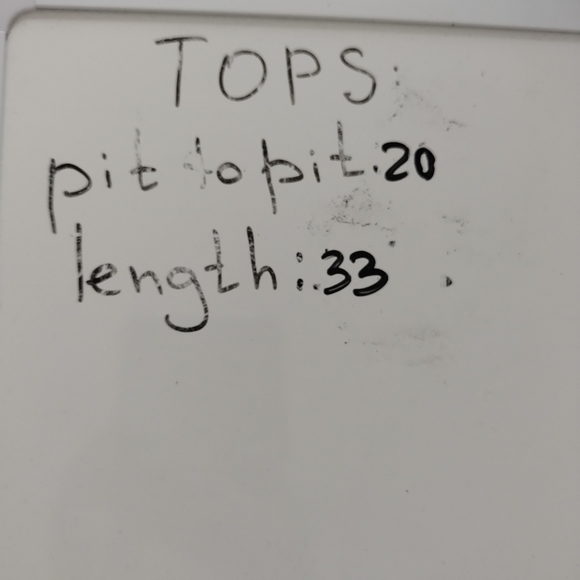 TOPS:
pit to pit:20
length:33